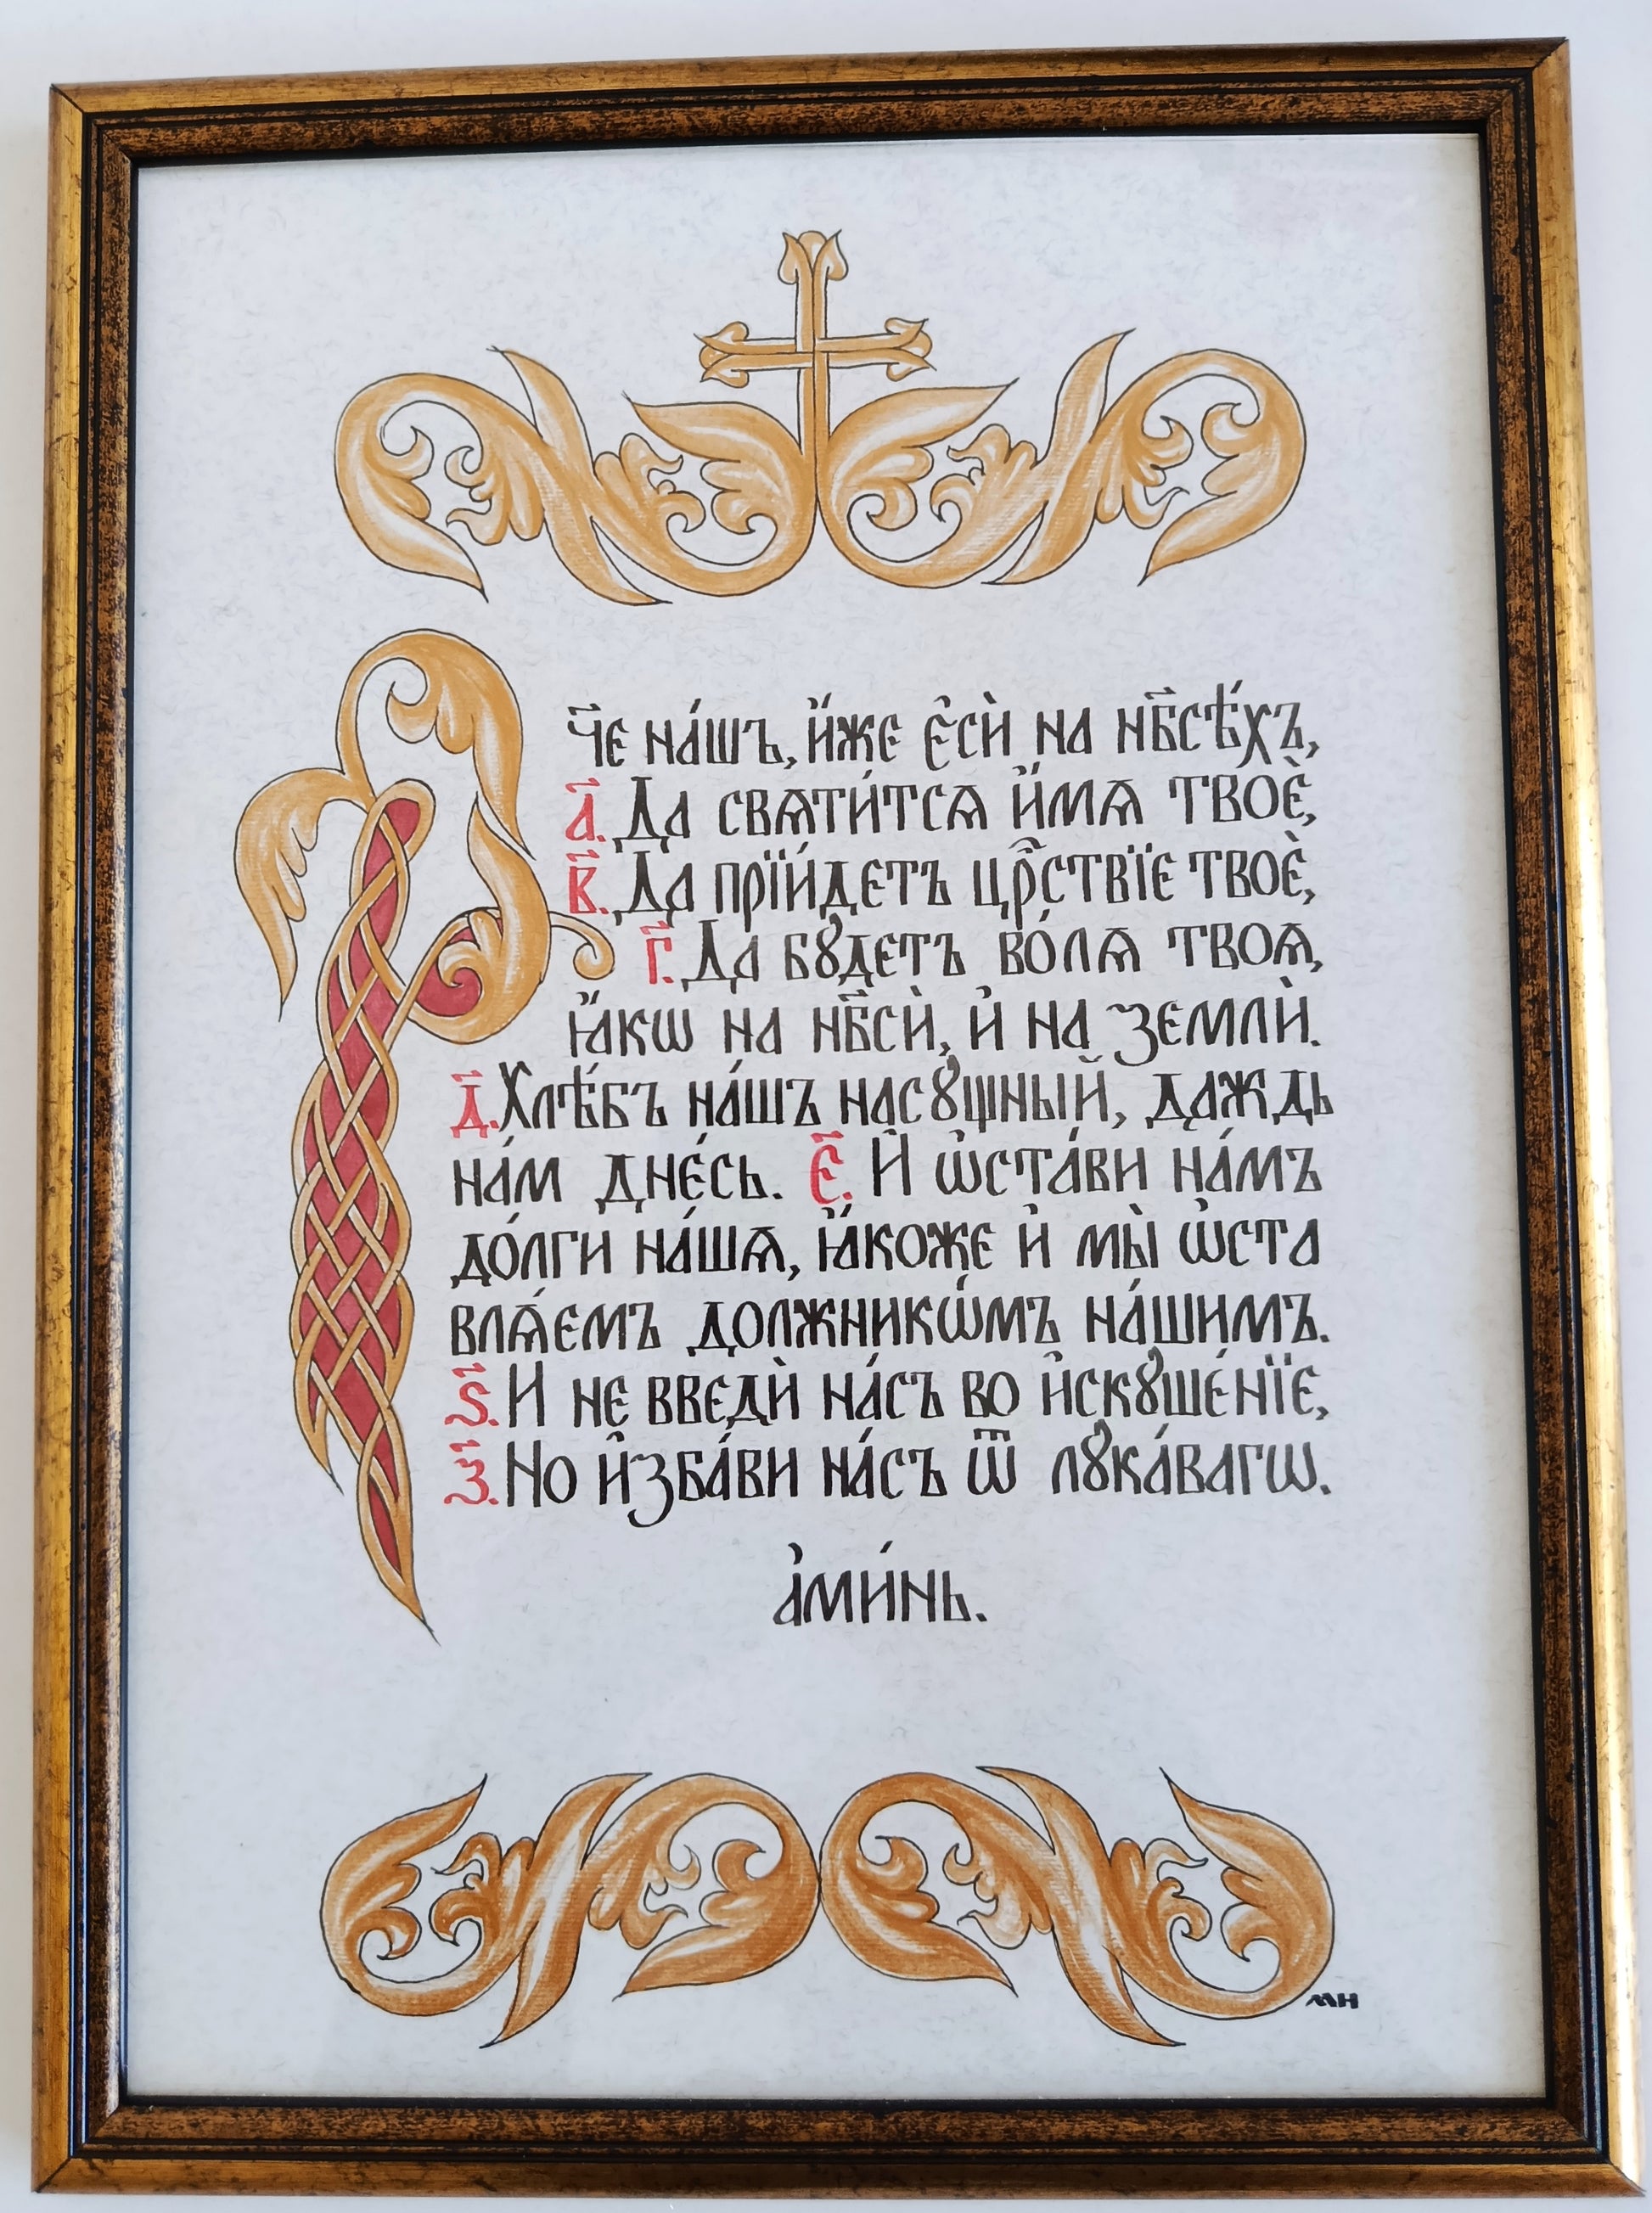 Ѻ҃че на́шъ, и҆́же є҆сѝ на нб҃сѣ́хъ,
а҃. Да свѧти́тсѧ и҆́мѧ твоѐ,
в҃. Да прїи́детъ цр҃ствїе твоѐ,
г҃. Да бꙋ́детъ во́лѧ твоѧ̀,
ꙗ҆́кѡ на нб҃сѝ, и҆ на землѝ.
д҃. Хлѣ́бъ на́шъ насꙋ́щный, даждь
на́м дне́сь. є҃. И҆ ѡ҆ста́ви на́мъ
до́лги на́шѧ, ꙗ҆́коже и҆ мы̀ ѡ҆ста
влѧ́емъ должникѡ́мъ на́шимъ.
ѕ҃. И не введѝ на́съ во и҆скꙋше́нїе,
з҃. Но и҆зба́ви на́съ ѿ лꙋка́вагѡ.
а҆ми́нь.
МН